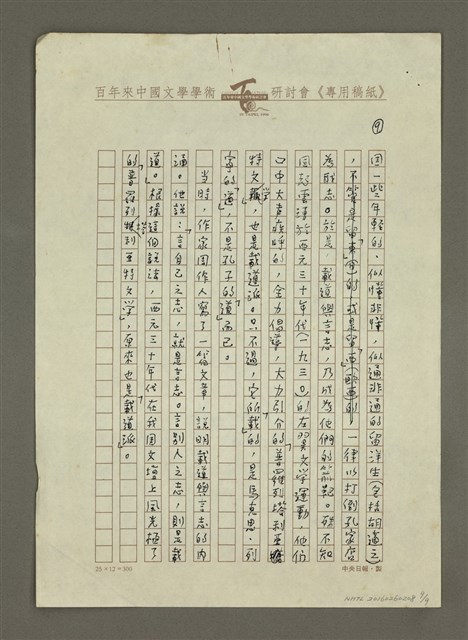 百年來中國文學學術研討會《專用稿紙》
⑨
因一些年輕的、似懂非懂,似通非通的留洋生(包括胡適之)
,不管是留東(會)的,或是留西(歐西)的,一律以打倒孔家店
為職志。於是,載道與言志,乃成為他們的箭靶。殊不知
風起雲湧於西元三十年代(一九三〇)的左翼文學運動,他們
口中大声疾呼的,全力倡導,大力引介的普羅列塔利亞
特文學,也是載道派。只不過,它所載的,是馬克思、列
寧的道,不是孔子的道而已。
當時,作家周作人寫了一篇文章,說明載道與言志的內
涵。他說:言自己之志,就是言志。言別人之志,則是載
道。根據這個說法,西元三十年代在我國文壇上風光極了
的普羅列塔利亞特文學,原來也是載道派。
25×12=300
中央日報·製
9/9